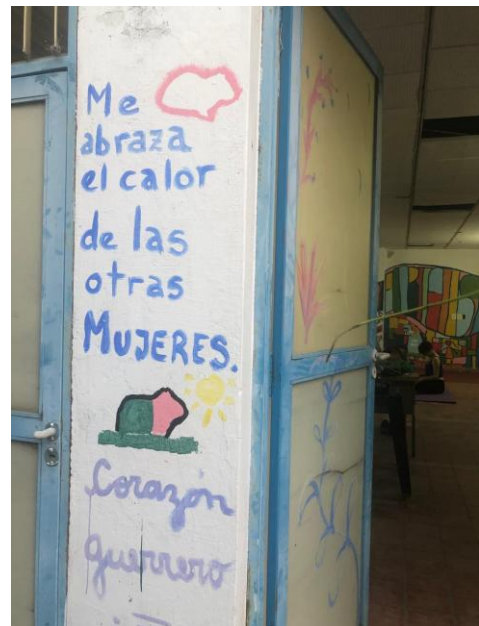 Me
abraza
el calor
de las
otras
MUJERES.
Corazón
guerrero